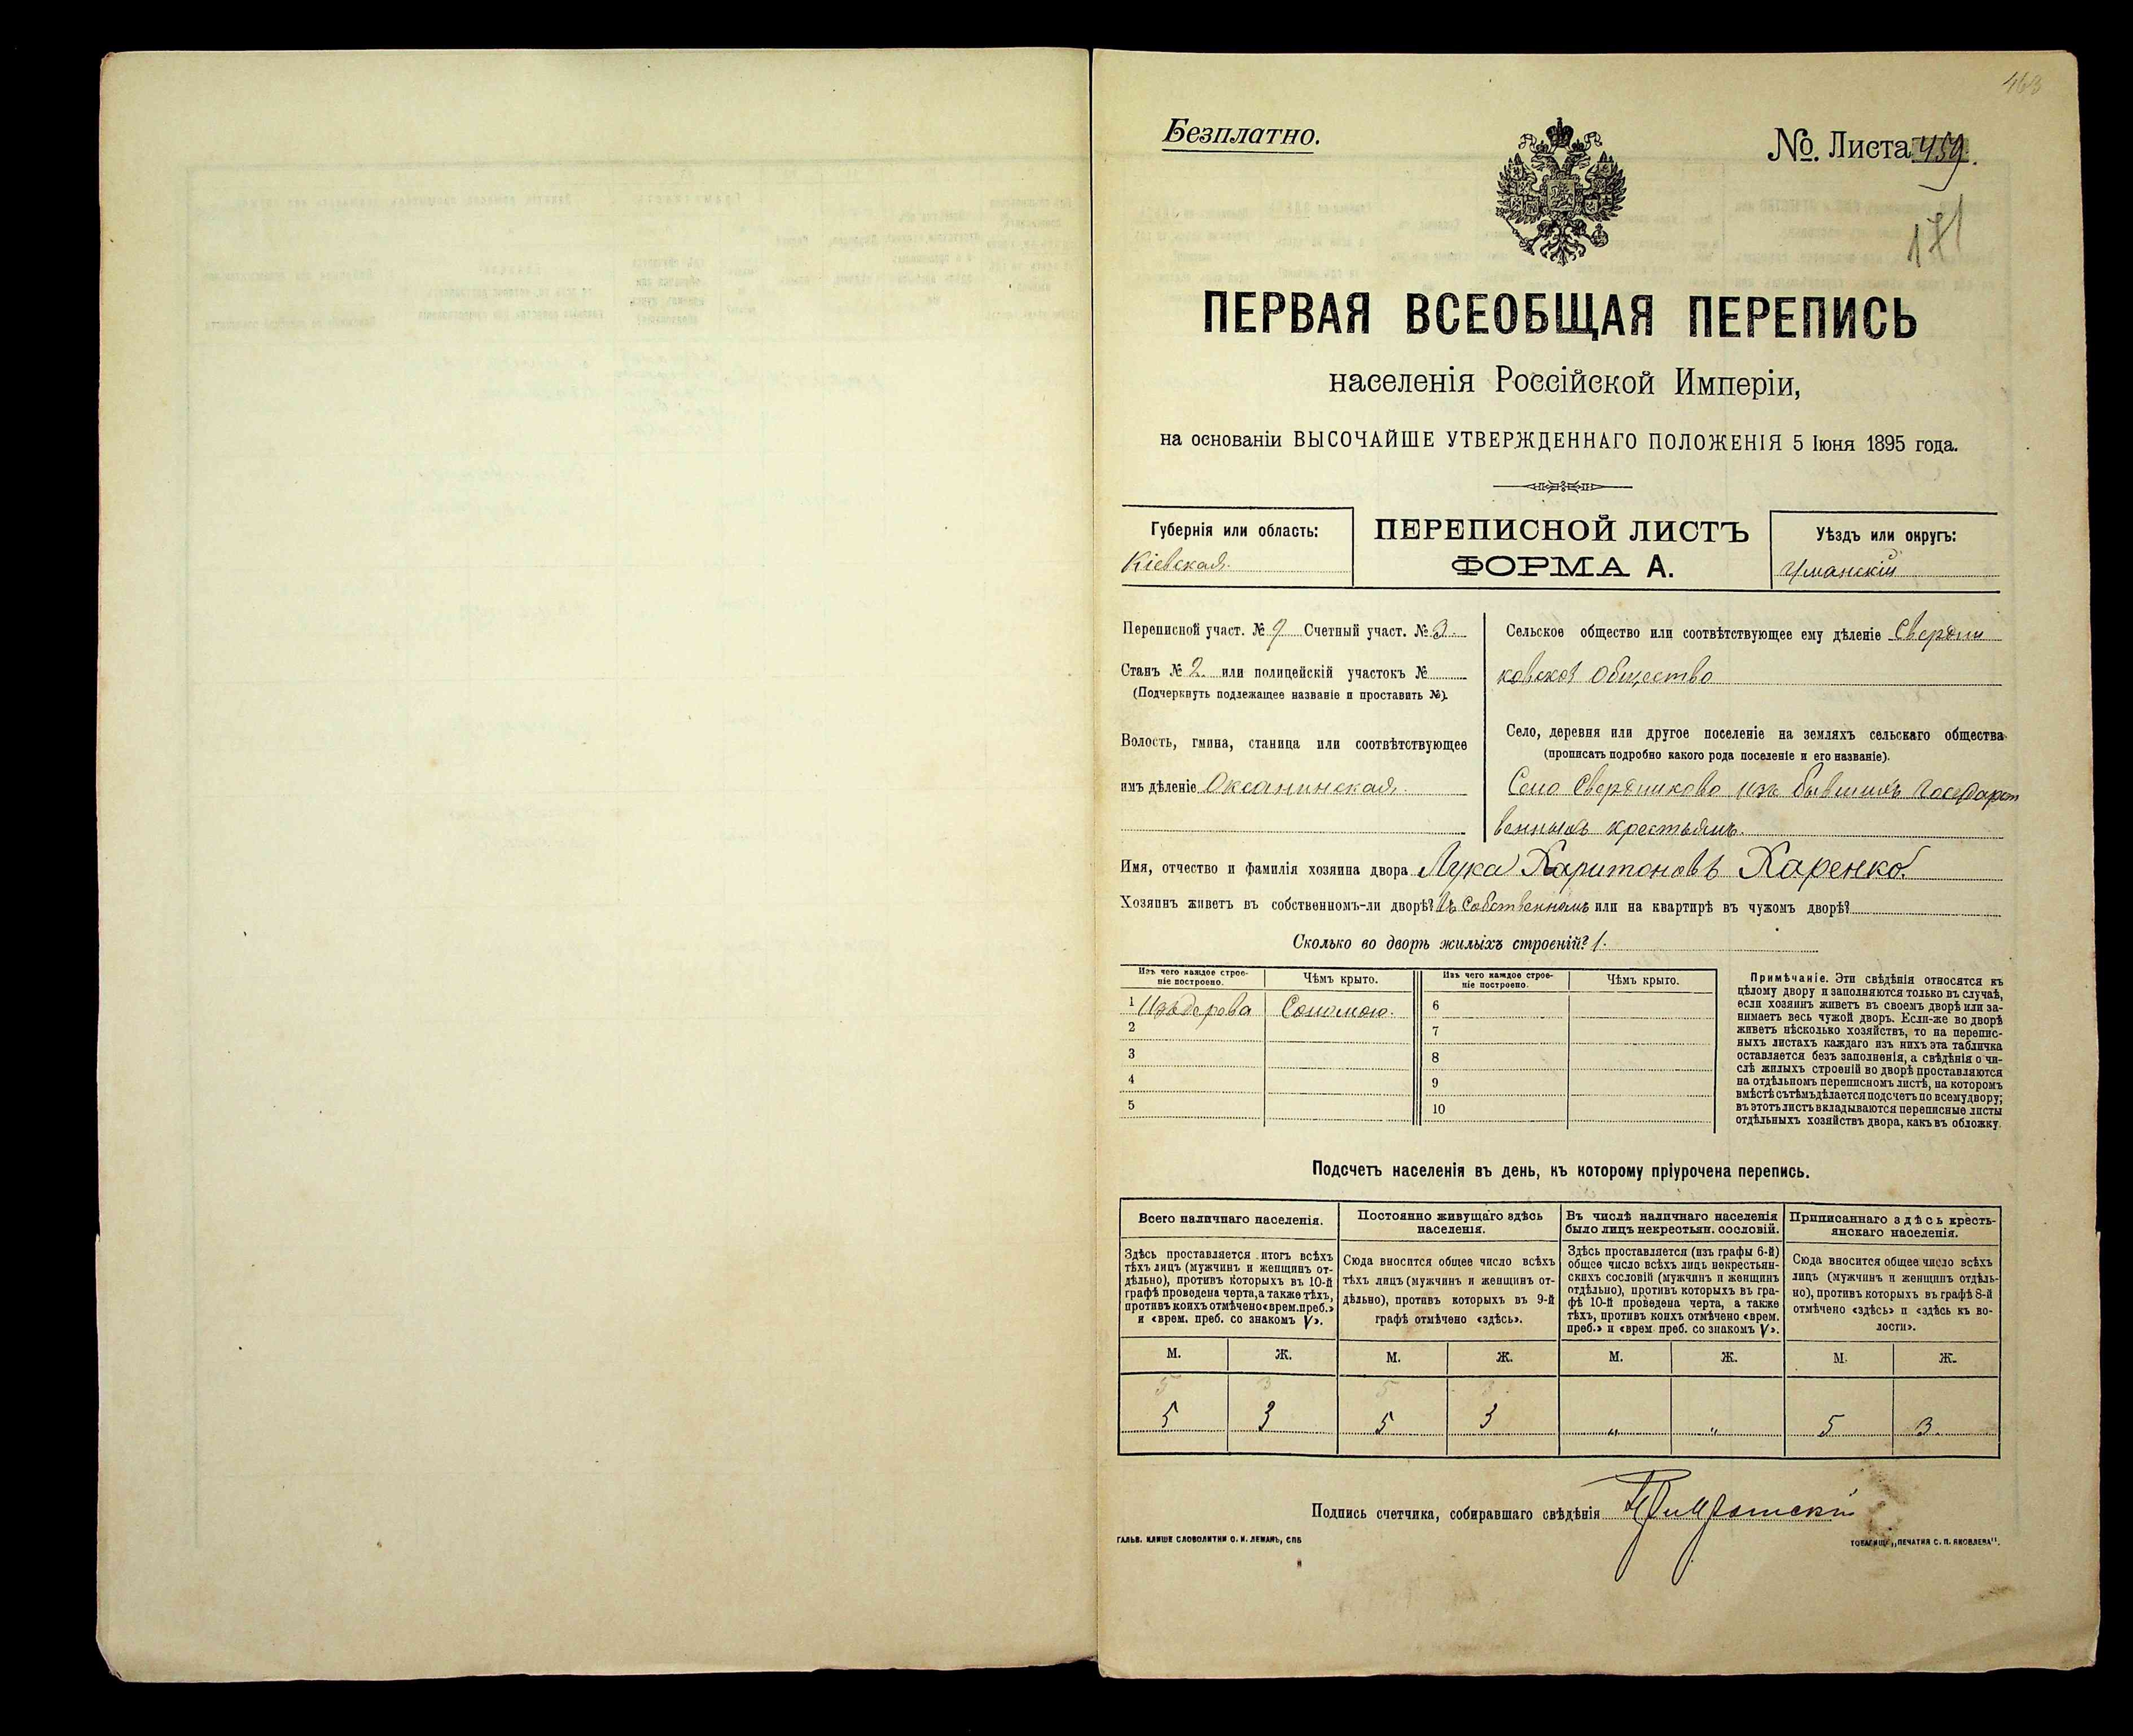 463
Безплатно.
№. Листа 459.
171
ПЕРВАЯ ВСЕОБЩАЯ ПЕРЕПИСЬ
населенія Россійской Имперіи,
на основаніи ВЫСОЧАЙШЕ УТВЕРЖДЕННАГО ПОЛОЖЕНІЯ 5 Іюня 1895 года.
Губернія или область:
Кіевская.
ПЕРЕПИСНОЙ ЛИСТЪ
ФОРМА А.
Уѣздъ или округъ:
Уманскій
Переписной участ. № 9 Счетный участ. № 3.
Станъ № 2. или полицейскій участокъ №
(Подчеркнуть подлежащее названіе и проставить №).
Волость, гмина, станица или соотвѣтствующее
имъ дѣленіе Оксанинская.
Сельское общество или соотвѣтствующее ему дѣленіе Свердли
ковское Общество
Село, деревня или другое поселеніе на земляхъ сельскаго общества
(прописать подробно какого рода поселеніе и его названіе).
Село Свердликово изъ бывшихъ Государст
венныхъ крестьянъ.
Имя, отчество и фамилія хозяина двора Лука Харитоновъ Харенко.
Хозяинъ живетъ въ собственномъ-ли дворѣ? Въ Собственномъ или на квартирѣ въ чужомъ дворѣ?
Сколько во дворѣ жилыхъ строеній? 1.
Изъ чего каждое строе-
ніе построено.
Чѣмъ крыто.
Изъ чего каждое строе-
ніе построено.
Чѣмъ крыто.
1 Изъ дерева Соломою. 6
2 7
3 8
4 9
5 10
Примѣчаніе. Эти свѣдѣнія относятся къ
цѣлому двору и заполняются только въ случаѣ,
если хозяинъ живетъ въ своемъ дворѣ или за-
нимаетъ весь чужой дворъ. Если-же во дворѣ
живетъ нѣсколько хозяйствъ, то на перепис-
ныхъ листахъ каждаго изъ нихъ эта табличка
оставляется безъ заполненія, а свѣдѣнія о чи-
слѣ жилыхъ строеній во дворѣ проставляются
на отдѣльномъ переписномъ листѣ, на которомъ
вмѣстѣ съ тѣмъ дѣлается подсчетъ по всему двору;
въ этотъ листъ вкладываются переписные листы
отдѣльныхъ хозяйствъ двора, какъ въ обложку.
Подсчетъ населенія въ день, къ которому пріурочена перепись.
Всего наличнаго населенія.
Здѣсь проставляется итогъ всѣхъ
тѣхъ лицъ (мужчинъ и женщинъ от-
дѣльно), противъ которыхъ въ 10-й
графѣ проведена черта, а также тѣхъ,
противъ коихъ отмѣчено «врем. преб.»
и «врем. преб. со знакомъ V».
Постоянно живущаго здѣсь
населенія.
Сюда вносится общее число всѣхъ
тѣхъ лицъ (мужчинъ и женщинъ от-
дѣльно), противъ которыхъ въ 9-й
графѣ отмѣчено «здѣсь».
Въ числѣ наличнаго населенія
было лицъ некрестьян. сословій.
Здѣсь проставляется (изъ графы 6-й)
общее число всѣхъ лицъ некрестьян-
скихъ сословій (мужчинъ и женщинъ
отдѣльно), противъ которыхъ въ гра-
фѣ 10-й проведена черта, а также
тѣхъ, противъ коихъ отмѣчено «врем.
преб.» и «врем. преб. со знакомъ V».
Приписаннаго здѣсь кресть-
янскаго населенія.
Сюда вносится общее число всѣхъ
лицъ (мужчинъ и женщинъ отдѣль-
но), противъ которыхъ въ графѣ 8-й
отмѣчено «здѣсь» и «здѣсь къ во-
лости».
М. Ж. М. Ж. М. Ж. М. Ж.
5 3 5 3
5 3 5 3 „ „ 5 3.
Подпись счетчика, собиравшаго свѣдѣнія
ГАЛЬВ. КЛИШЕ СЛОВОЛИТНИ О. И. ЛЕМАНЪ, СПБ
ТОВАРИЩ. „ПЕЧАТНЯ С. П. ЯКОВЛЕВА".